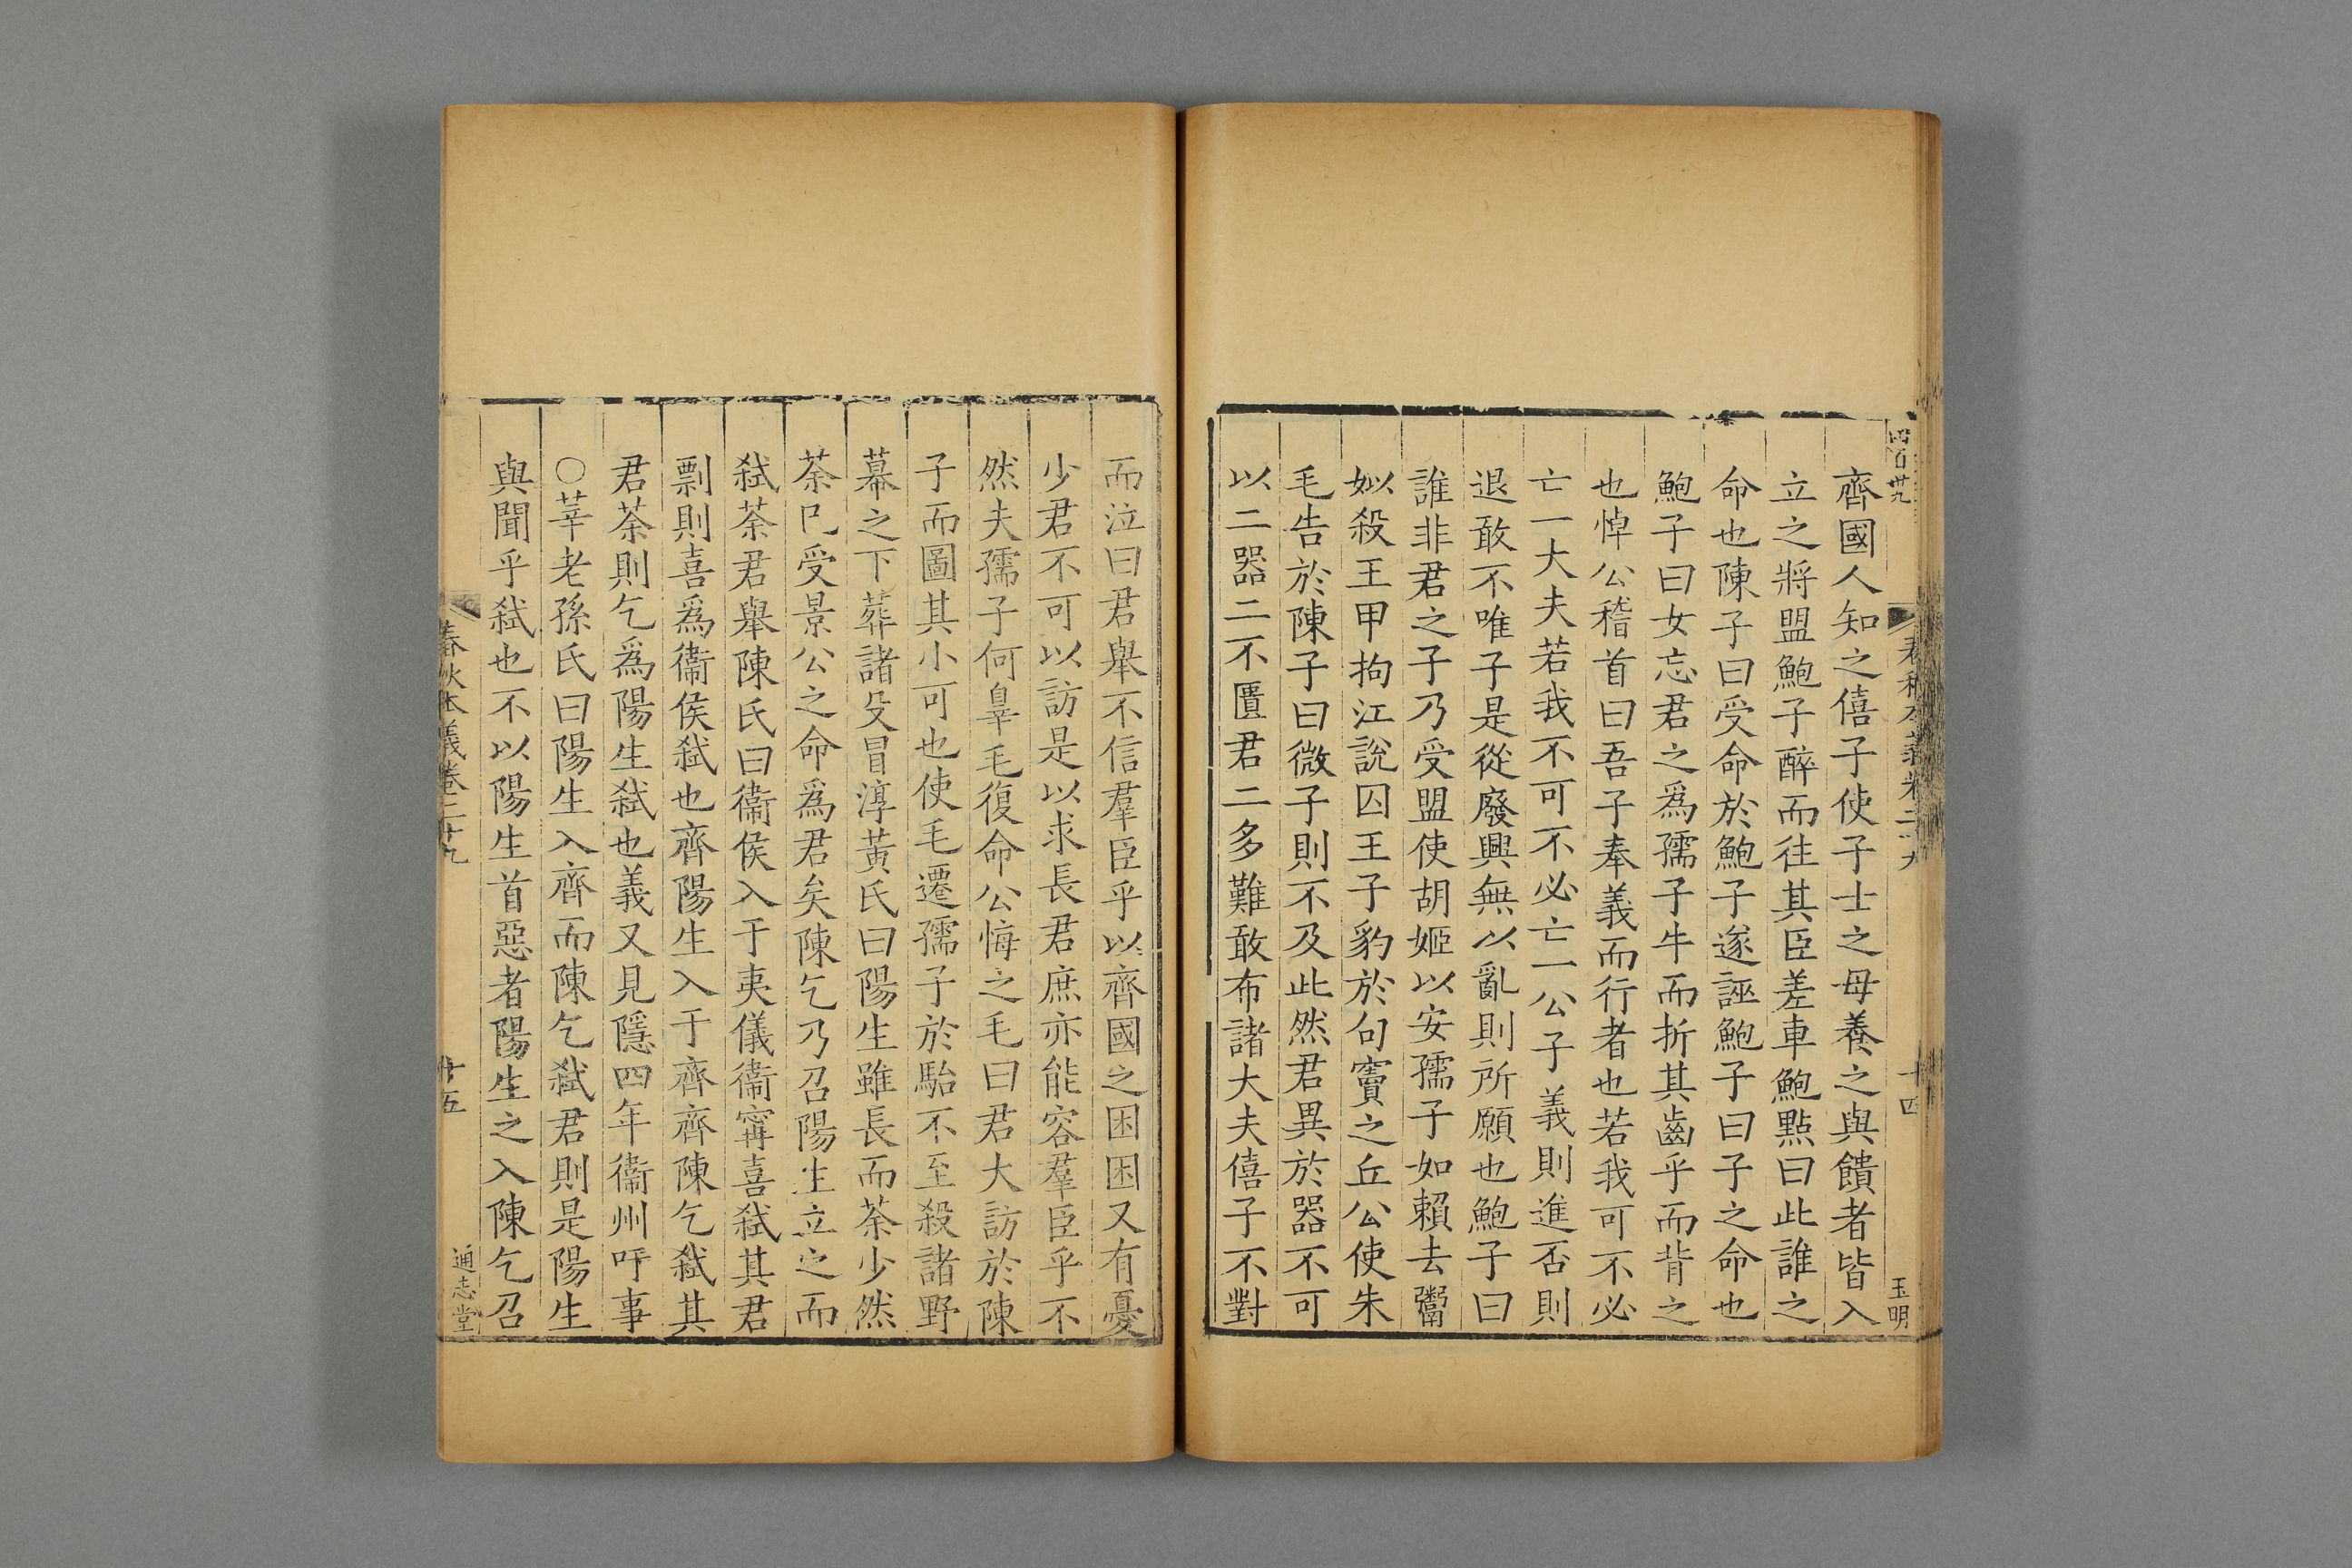 四百卅九
春秋本義卷二十九
十四
玉明
齊國人知之僖子使子士之母養之與饋者皆入
立之將盟鮑子醉而往其臣差車鮑點曰此誰之
命也陳子曰受命於鮑子遂誣鮑子曰子之命也
鮑子曰女忘君之爲孺子牛而折其齒乎而背之
也悼公稽首曰吾子奉義而行者也若我可不必
亡一大夫若我不可不必亡一公子義則進否則
退敢不唯子是從廢興無以亂則所願也鮑子曰
誰非君之子乃受盟使胡姬以安孺子如賴去鬻
姒殺王甲拘江說囚王子豹於句竇之丘公使朱
毛告於陳子曰微子則不及此然君異於器不可
以二器二不匱君二多難敢布諸大夫僖子不對
而泣曰君舉不信羣臣乎以齊國之困困又有憂
少君不可以訪是以求長君庶亦能容羣臣乎不
然夫孺子何辠毛復命公悔之毛曰君大訪於陳
子而圖其小可也使毛遷孺子於駘不至殺諸野
幕之下葬諸殳冒淳黃氏曰陽生雖長而荼少然
荼已受景公之命爲君矣陳乞乃召陽生立之而
弑荼君舉陳氏曰衞侯入于夷儀衞寗喜弑其君
剽則喜爲衞侯弑也齊陽生入于齊齊陳乞弑其
君荼則乞爲陽生弑也義又見隱四年衞州吁事
○莘老孫氏曰陽生入齊而陳乞弑君則是陽生
與聞乎弑也不以陽生首惡者陽生之入陳乞召
春秋本義卷二十九
十五
通志堂